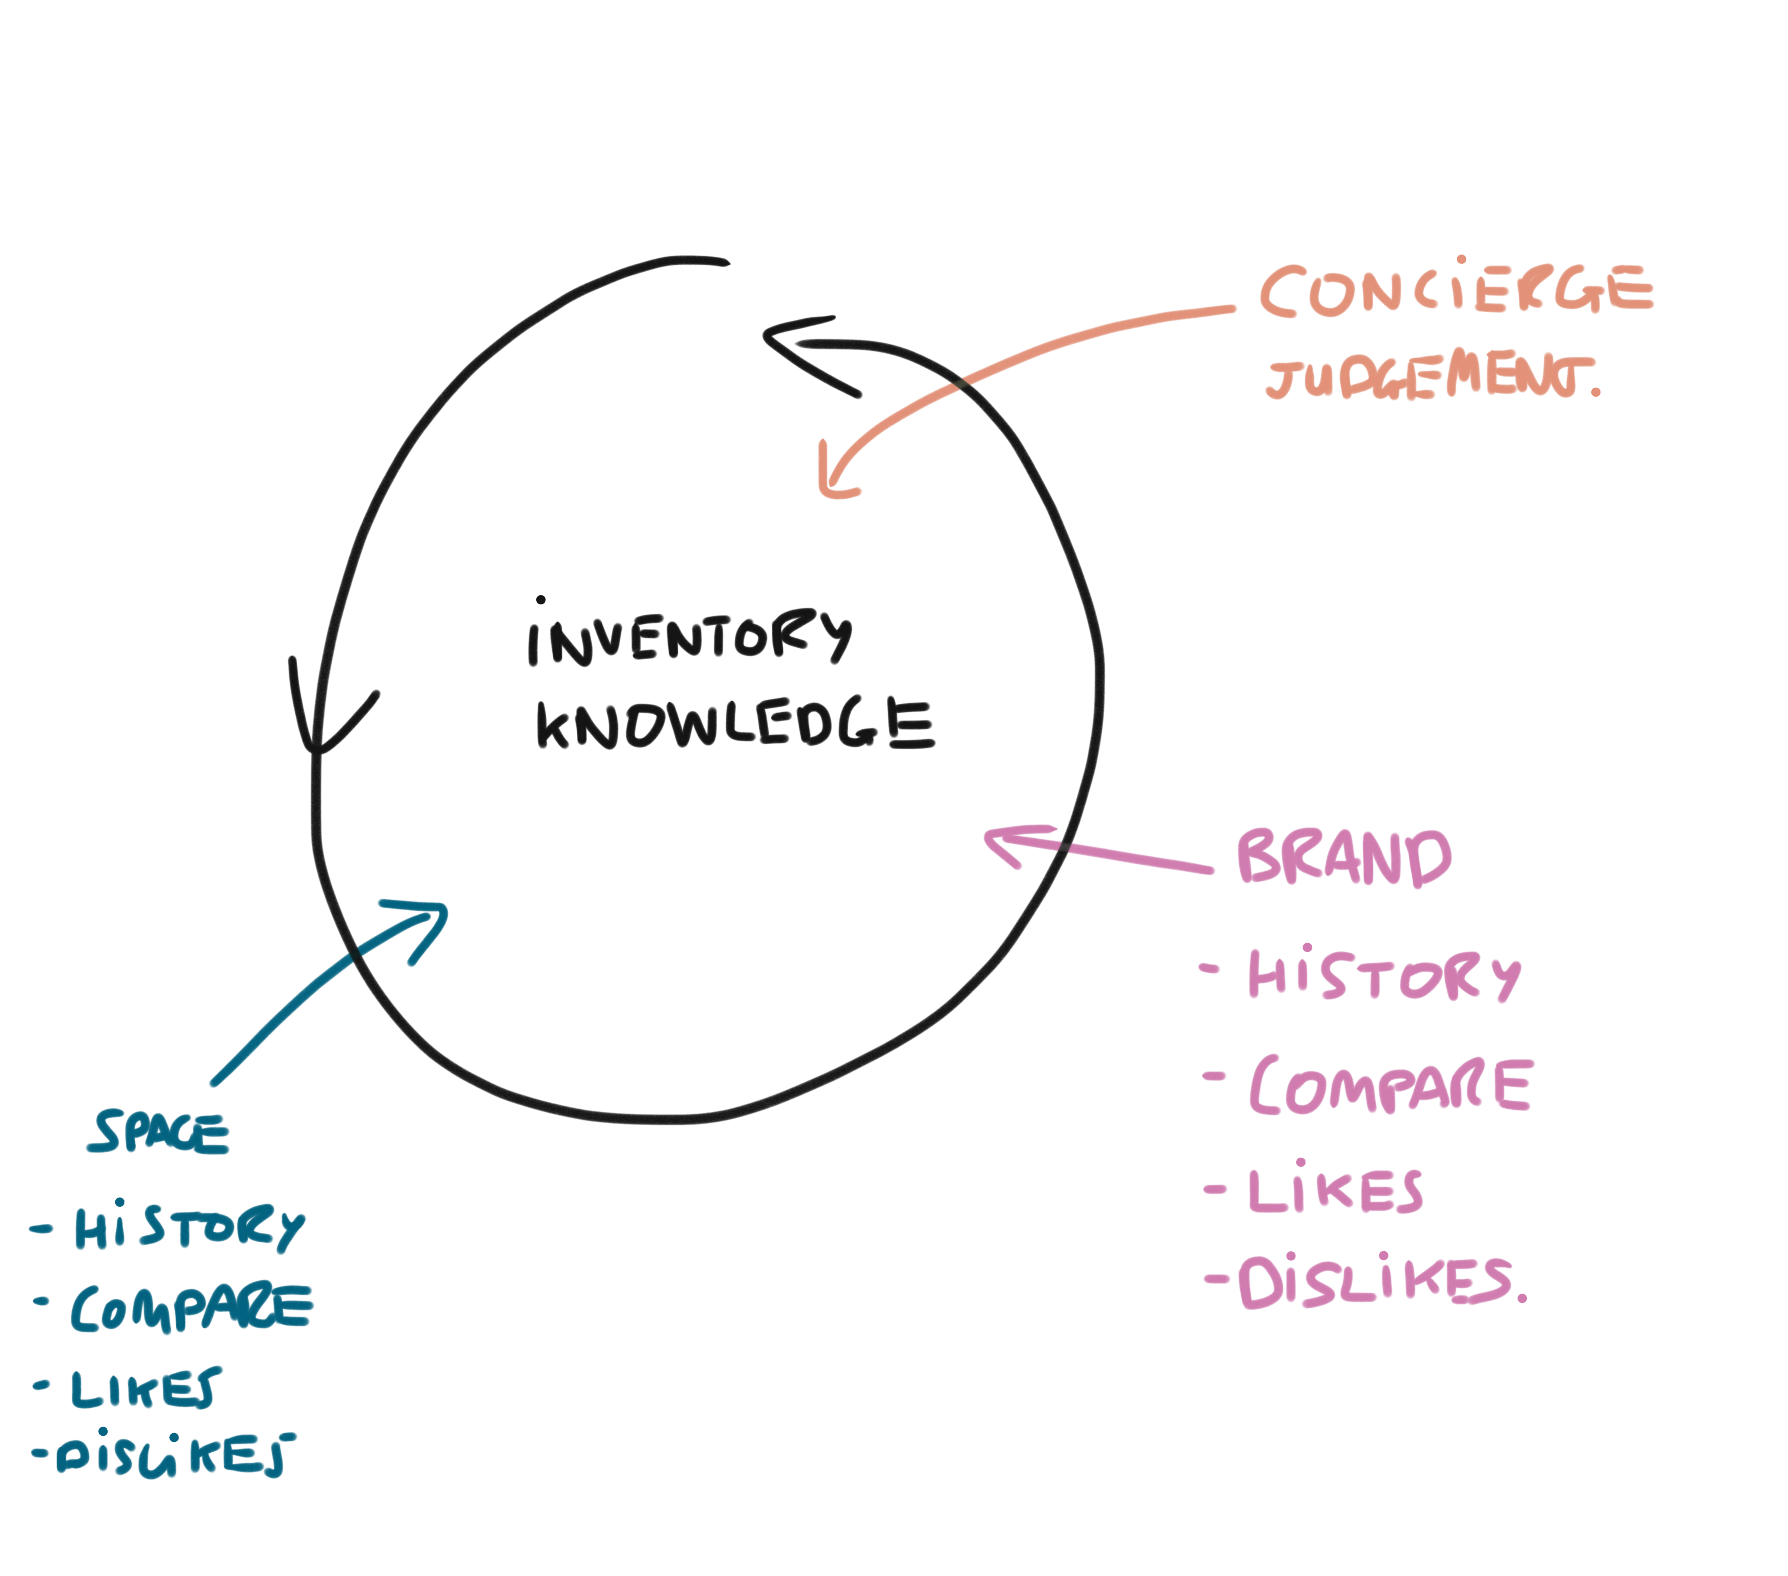 CONCIERGE
JUDGEMENT.
INVENTORY
KNOWLEDGE
BRAND
- HISTORY
- COMPARE
- LIKES
- DISLIKES.
SPACE
- HISTORY
- COMPARE
- LIKES
- DISLIKES